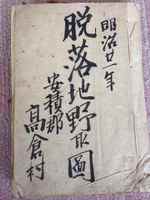 明治廿一年
脱落地野取圖
安積郡
髙倉村